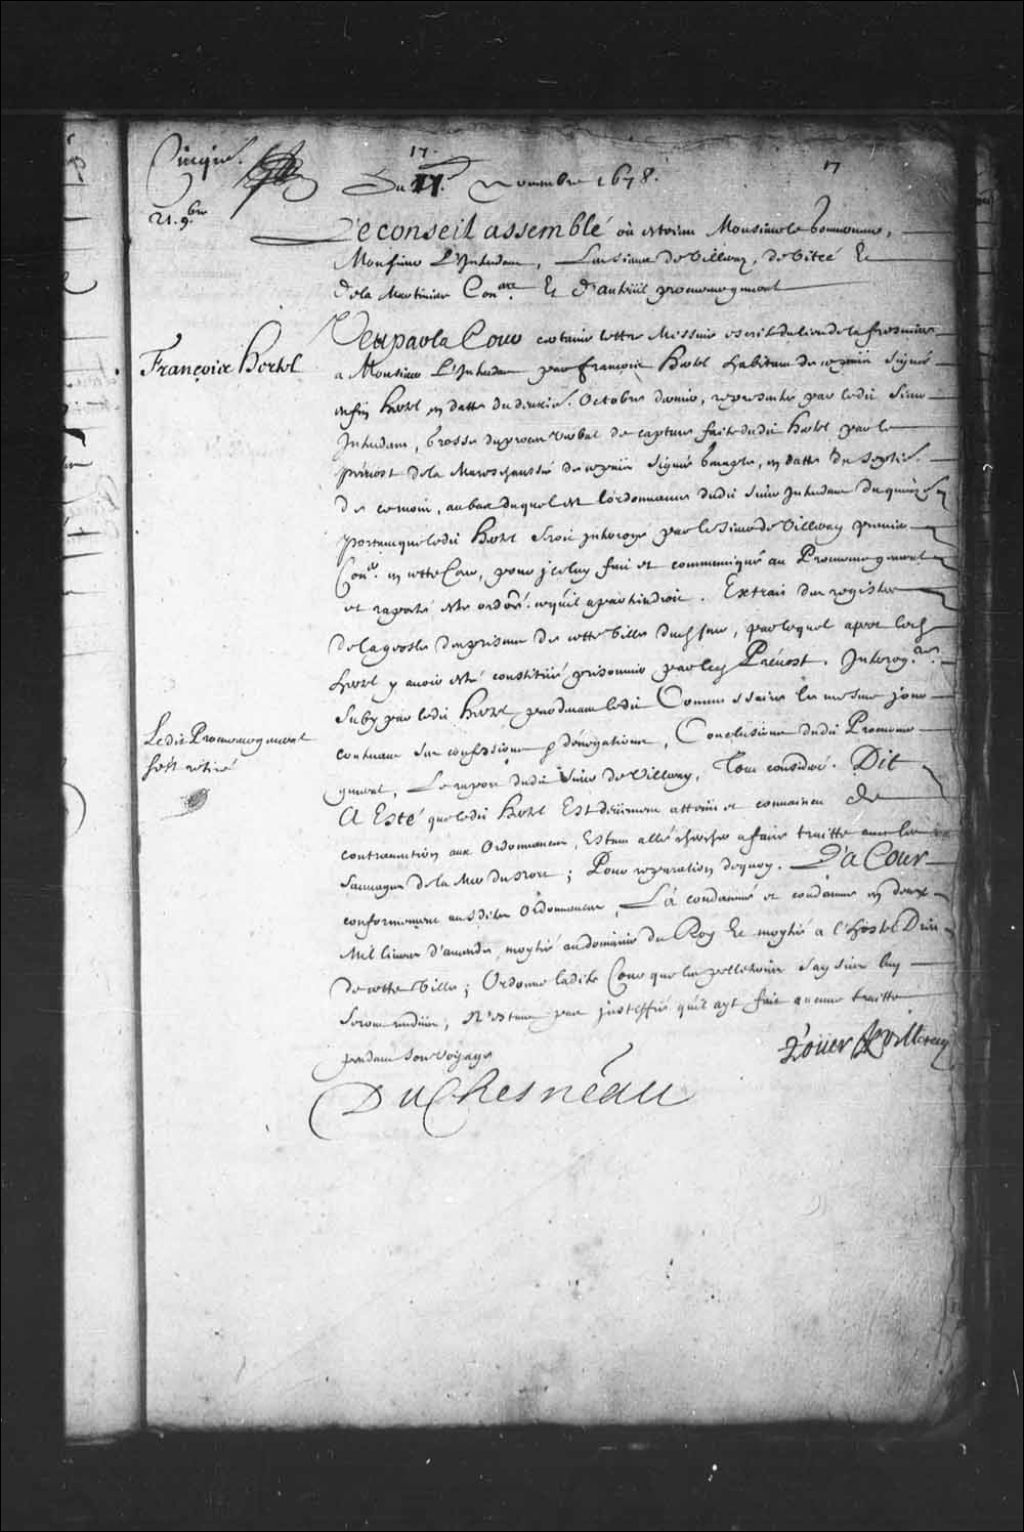 17.
17
Du 17e Novembre 1678.
21. 9bre
Le conseil assemblé où estoient Monsieur le Gouverneur,
Monsieur L'Intendant, Les sieurs de Villeray, de Vitré Et
De la Martiniere Coners Et d'auteüil procureur general
François Hertel
Veu par la Cour certaine lettre Missive escrite du lieu de la
a Monsieur L'Intendant par François Hertel habitant de ce païs signée
enfin Hertel en datte du deuxie. Octobre dernier, representée par ledit Sieur
Intendant, Grosse du procez Verbal de capture faite dudit Hertel par le
prevost de la Mareschaussée de ce païs signée en datte du septie.
de ce mois, au bas duquel est l'ordonnance dudit sieur Intendant du quinze
portant que ledit Hertel seroit interrogé par le sieur de Villeray premier
Coner. en cette Cour, pour iceluy fait et communiqué au Procureur general
et raporté estre ordoné. ce qu'il apartiendroit. Extrait du registre
de la geosle des prisons de cette Ville par lequel apert led
Hertel y avoir esté constitüé prisonnier par led Prévost. Interogre.
Suby par ledit Hertel pardevant ledit Commissaire le mesme jour
contenant ses confessions et dénégations, Conclusions dudit Procureur
Ledit Procureur general
s'est retiré
general, Le raport dudit sieur de Villeray, Tout consideré. Dit
A Esté que ledit Hertel Est deüement attaint et convaincu de
contravention aux Ordonnances, Estant allé chercher a faire traitte avec les
sauvages de la Mer du nord; Pour reparation dequoy. La Cour
conformement ausdites Ordonnances, L'a condamné et condamne en deux
Mil livres d'amende, moytié au domaine du Roy Et moytié a l'hostel Dieu
de cette Ville; Ordonne ladite Cour que les pelleteries saysies luy
seront rendües, N'estant pas justiffié qu'il ayt fait aucune traitte
pendant son voyage
Roüer de Villeray
DuChesneau